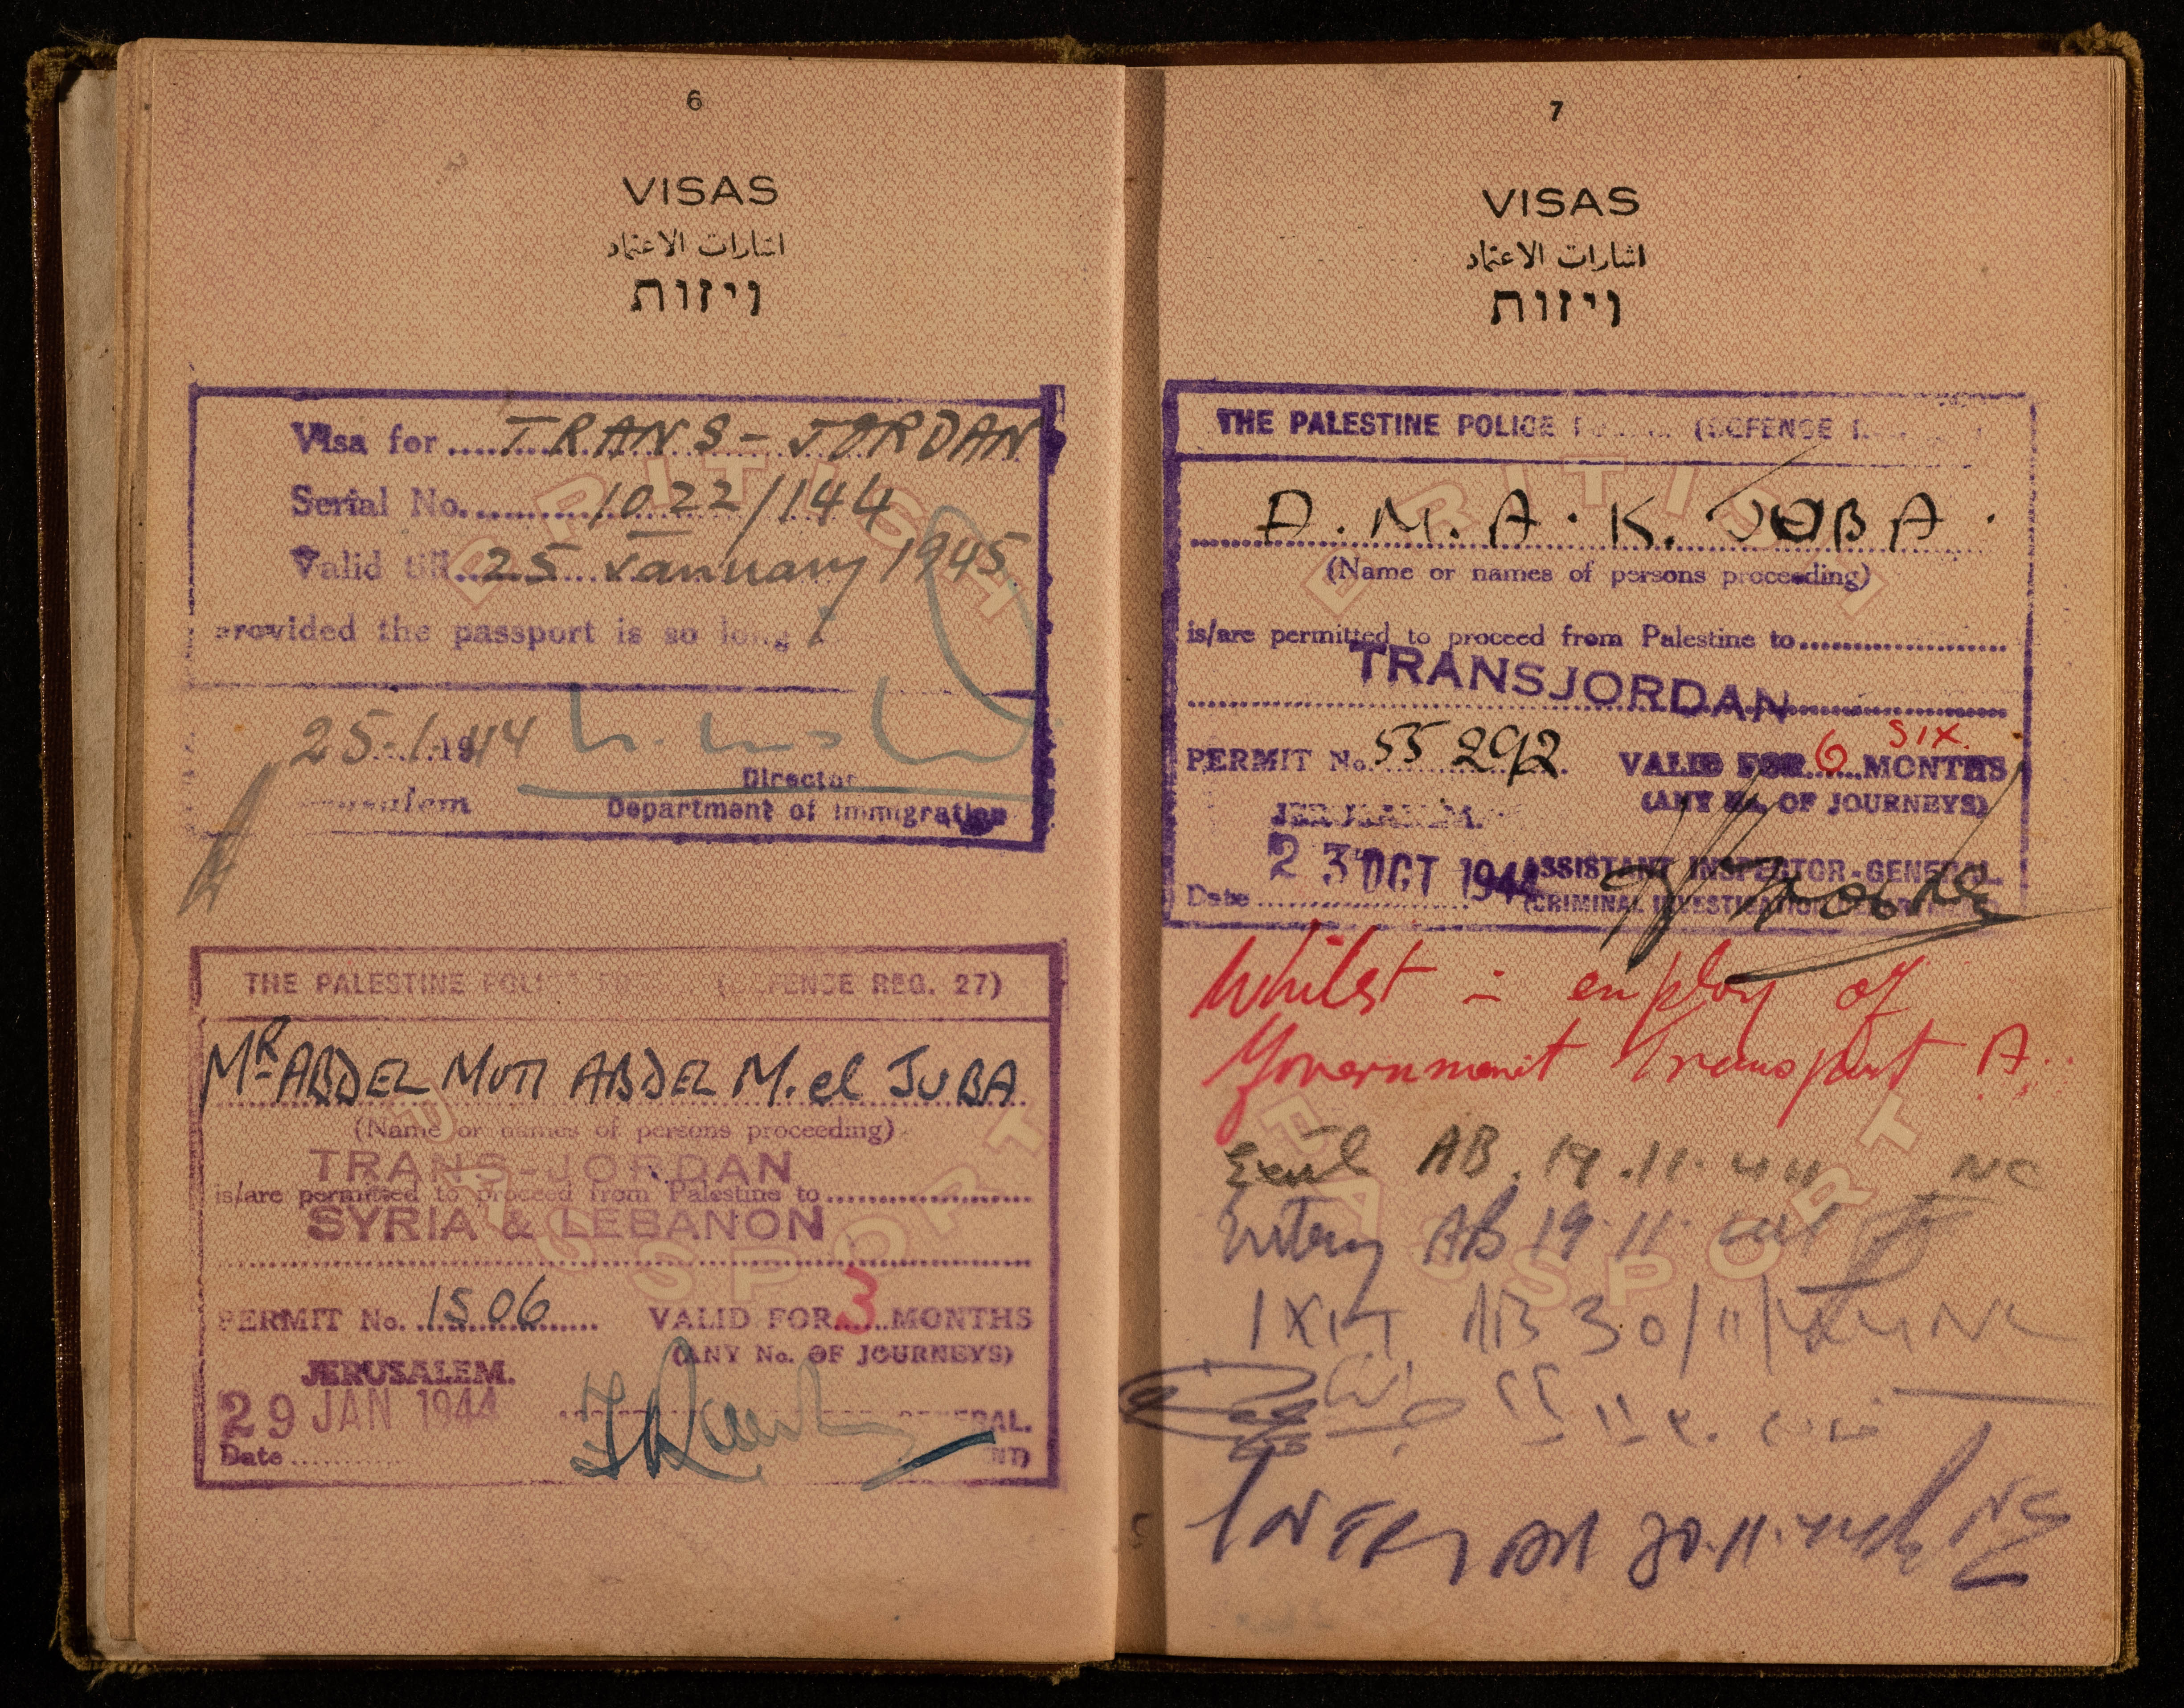 6
VISAS
اشارات الاعتماد
ויזות
Visa for TRANS-JORDAN
Serial No. 1022/144
Valid till 25 January 1945
provided the passport is so long
25.1.1944
Director
Department of Immigration
THE PALESTINE POLICE (DEFENCE REG. 27)
MR ABDEL MUTI ABDEL M. el JUBA
(Name or names of persons proceeding)
TRANS-JORDAN
is/are permitted to proceed from Palestine to
SYRIA & LEBANON
PERMIT No. 1506 VALID FOR 3 MONTHS
(ANY No. OF JOURNEYS)
JERUSALEM.
29 JAN 1944
Date
BRITISH
PASSPORT
7
VISAS
اشارات الاعتماد
ויזות
THE PALESTINE POLICE (DEFENSE
A. M. A. K. JUBA.
(Name or names of persons proceeding)
is/are permitted to proceed from Palestine to
TRANSJORDAN
PERMIT No. 55292 VALID FOR 6 SIX MONTHS
(ANY No. OF JOURNEYS)
JERUSALEM.
23 OCT 1944
ASSISTANT INSPECTOR-GENERAL.
Date
(CRIMINAL INVESTIGATION
Whilst in employ of
Government Transport A.
AB. 19.11.44 NC
Entry AB 19.11.44
EXIT AB 30/11/44 NC
ENTRY 30.11.44 NC
BRITISH
PASSPORT